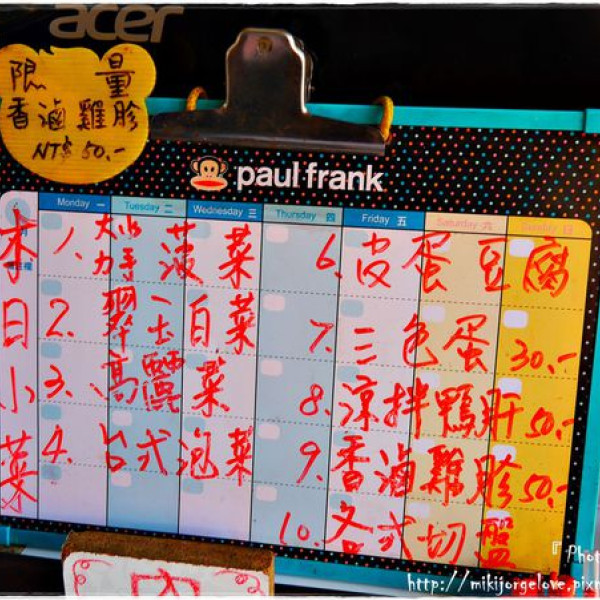 acer
限量
香滷雞胗
NT$ 50.-
paul frank
Monday 一 Tuesday 二 Wednesday 三 Thursday 四 Friday 五 Saturday 六 Sunday 日
本日小菜
1. 大力水手菠菜
2. 翠玉白菜
3. 高麗菜
4. 台式泡菜
6. 皮蛋豆腐
7. 三色蛋 30.-
8. 涼拌鴨肝 50.-
9. 香滷雞胗 50.-
10. 各式切盤
『 Phot
http://mikijorgelove.pixn